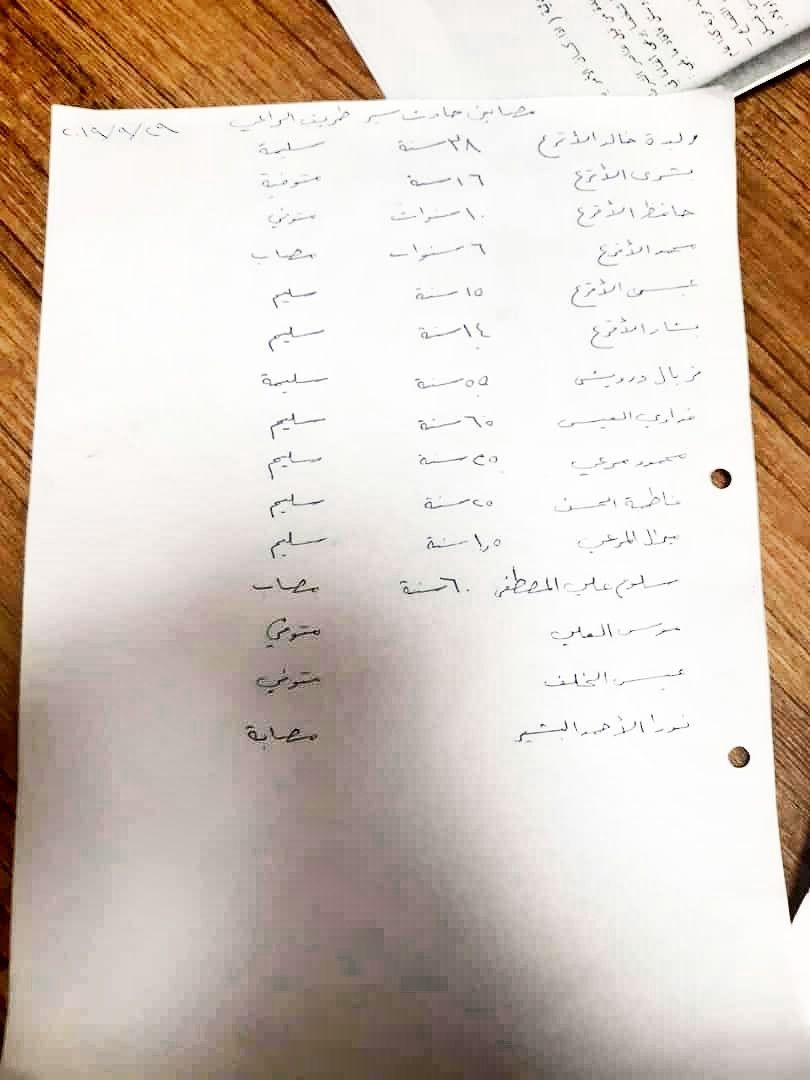 مصابين حادث سير طريق الراعي ٢٠١٩/٧/٢٩
وليدة خالد الأقرع ٣٨ سنة سليمة
بشرى الأقرع ١٦ سنة متوفية
حافظ الأقرع ١٠ سنوات متوفي
محمد الأقرع ٦ سنوات مصاب
عيسى الأقرع ١٥ سنة سليم
بشار الأقرع ١٤ سنة سليم
فريال درويش ٥٥ سنة سليمة
العيسى ٦٥ سنة سليم
محمود مرعي سنة سليم
فاطمة الحسن ٢٥ سنة سليم
المرعي ١,٥ سنة سليم
سلوم علي المصطفى ٦٠ سنة مصاب
العلي متوفي
عيسى الخلف متوفي
نورا الأحمد البشير مصابة